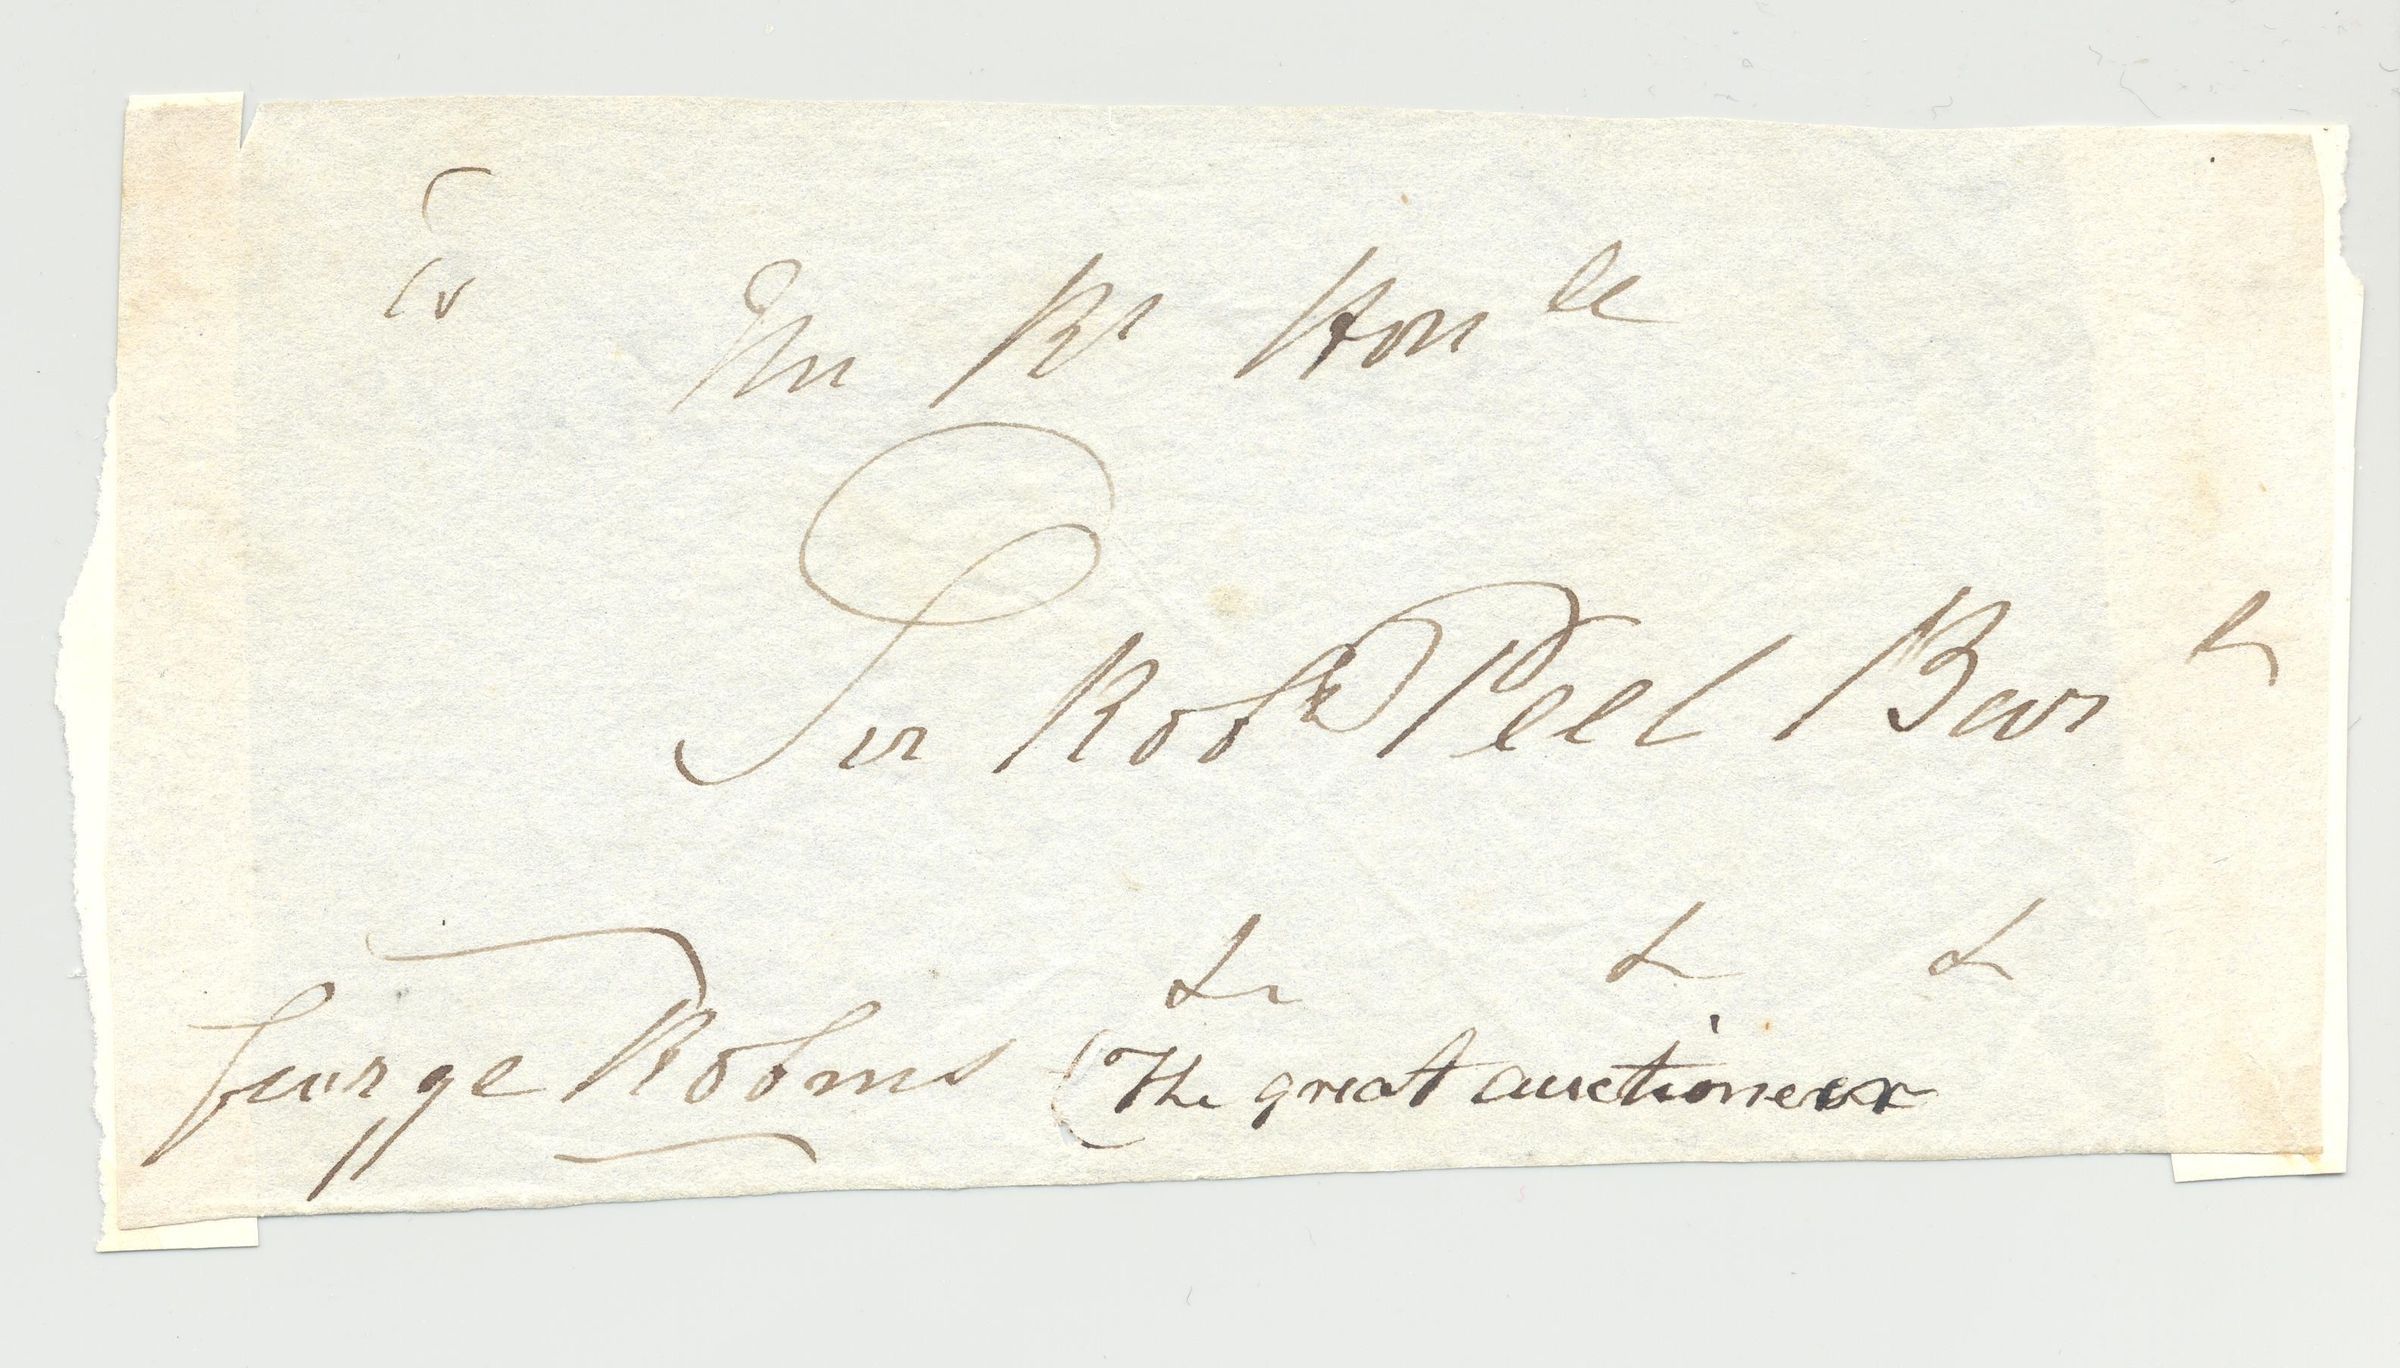 To The Rt Honle
Sir Robt Peel Bart
& & &
George Robins (The great auctioneer